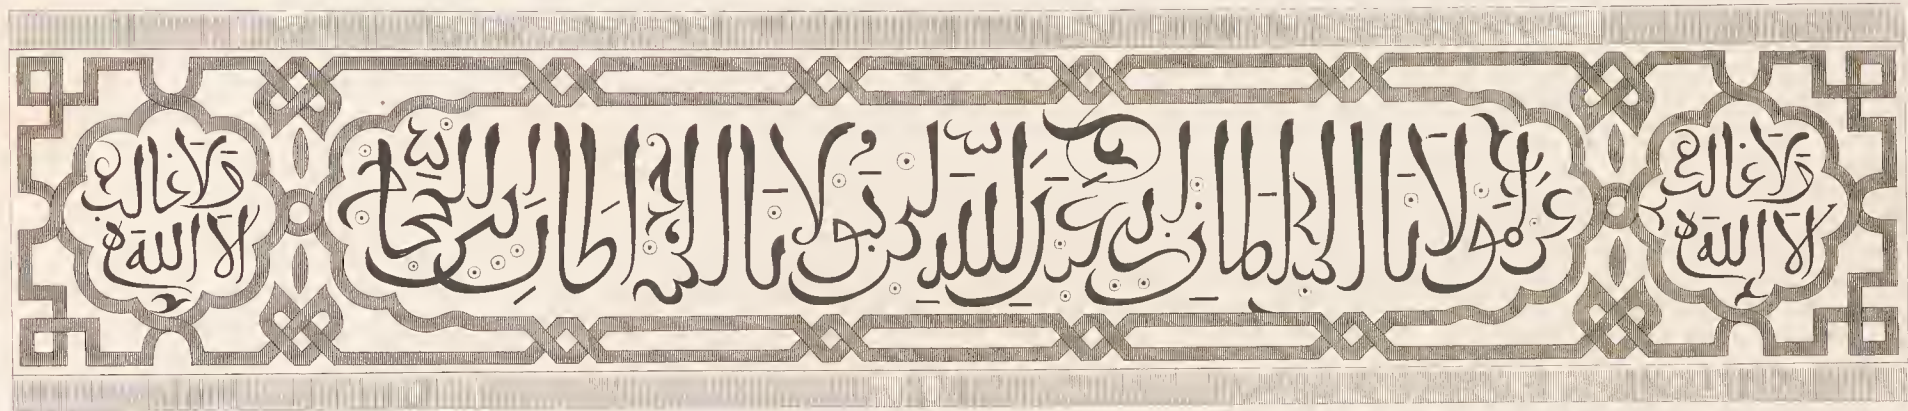 ولا غالب
الا الله
عز لمولانا السلطان ابي عبد الله ابن مولانا السلطان ابي الحجاج
ولا غالب
الا الله